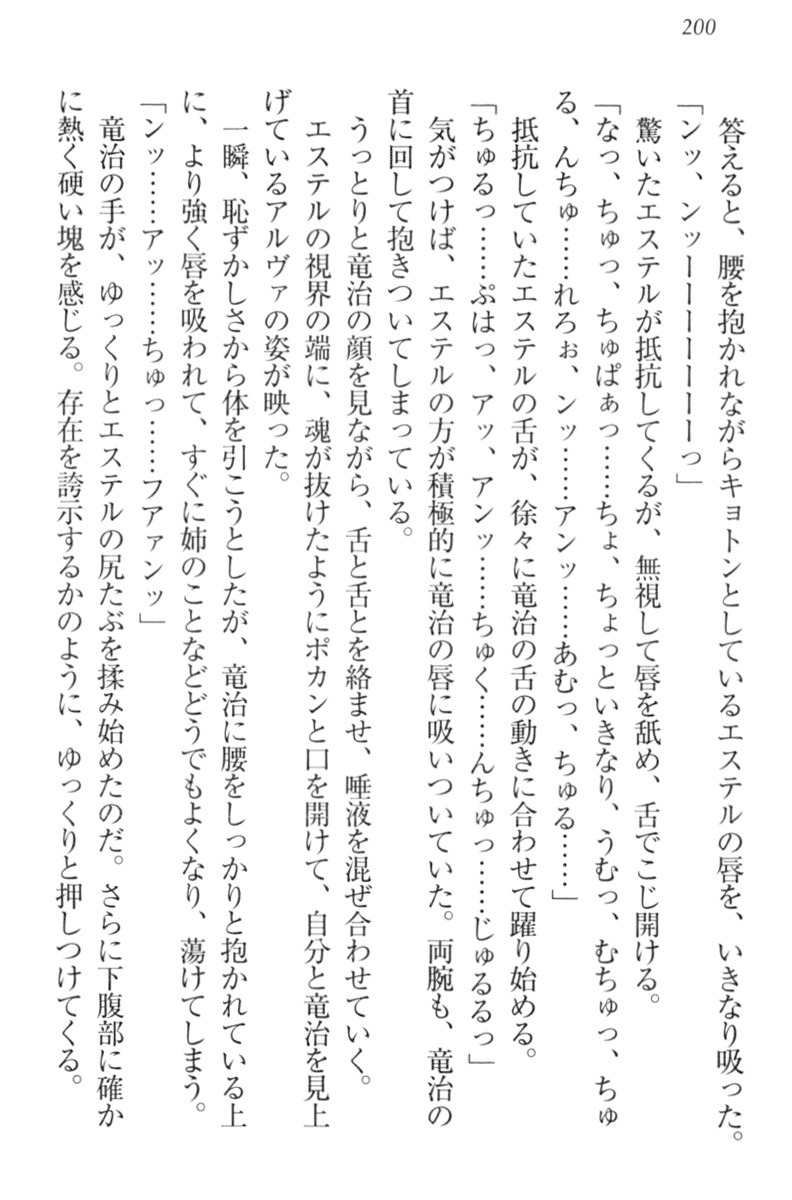 200
答えると、腰を抱かれながらキョトンとしているエステルの唇を、いきなり吸った。
「ンッ、ンッーーーーーーーっ」
驚いたエステルが抵抗してくるが、無視して唇を舐め、舌でこじ開ける。
「なっ、ちゅっ、ちゅぱぁっ……ちょ、ちょっといきなり、うむっ、むちゅっ、ちゅ
る、んちゅ……れろぉ、ンッ……アンッ……あむっ、ちゅる……」
抵抗していたエステルの舌が、徐々に竜治の舌の動きに合わせて躍り始める。
「ちゅるっ……ぷはっ、アッ、アンッ……ちゅく……んちゅっ……じゅるるっ」
気がつけば、エステルの方が積極的に竜治の唇に吸いついていた。両腕も、竜治の
首に回して抱きついてしまっている。
うっとりと竜治の顔を見ながら、舌と舌とを絡ませ、唾液を混ぜ合わせていく。
エステルの視界の端に、魂が抜けたようにポカンと口を開けて、自分と竜治を見上
げているアルヴァの姿が映った。
一瞬、恥ずかしさから体を引こうとしたが、竜治に腰をしっかりと抱かれている上
に、より強く唇を吸われて、すぐに姉のことなどどうでもよくなり、蕩けてしまう。
「ンッ……アッ……ちゅっ……フアァンッ」
竜治の手が、ゆっくりとエステルの尻たぶを揉み始めたのだ。さらに下腹部に確か
に熱く硬い塊を感じる。存在を誇示するかのように、ゆっくりと押しつけてくる。